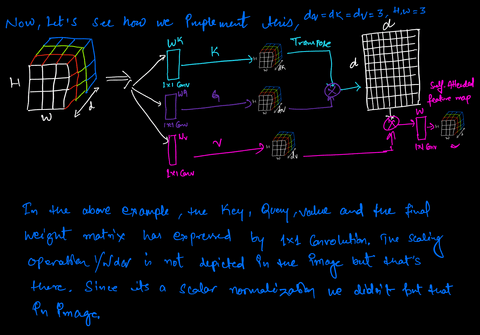 Now, Let's see how we Implement this, dq = dk = dv = 3, H,W = 3
H
W
d
W^K
K
1x1 Conv
H
W
dk
Transpose
d
d
Wq
Q
1x1 Conv
H
W
1x1 Conv
Wv
V
H
W
dv
Self-Attended
feature map
W
1x1 Conv
In the above example, the Key, Query, value and the final
weight matrix has expressed by 1x1 Convolution. The scaling
operation is not depicted in the image but that's
there. Since its a scalar normalization we didn't put that
in image.